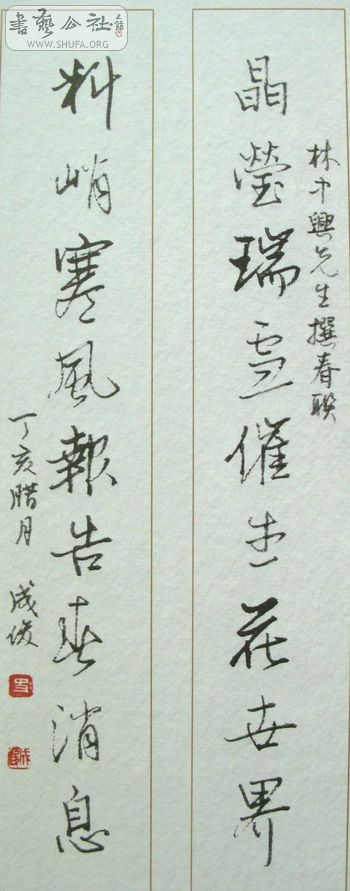 書藝公社
WWW.SHUFA.ORG
林中興先生撰春联
晶瑩瑞雪催生花世界
料峭寒風報告春消息
丁亥腊月 成俊